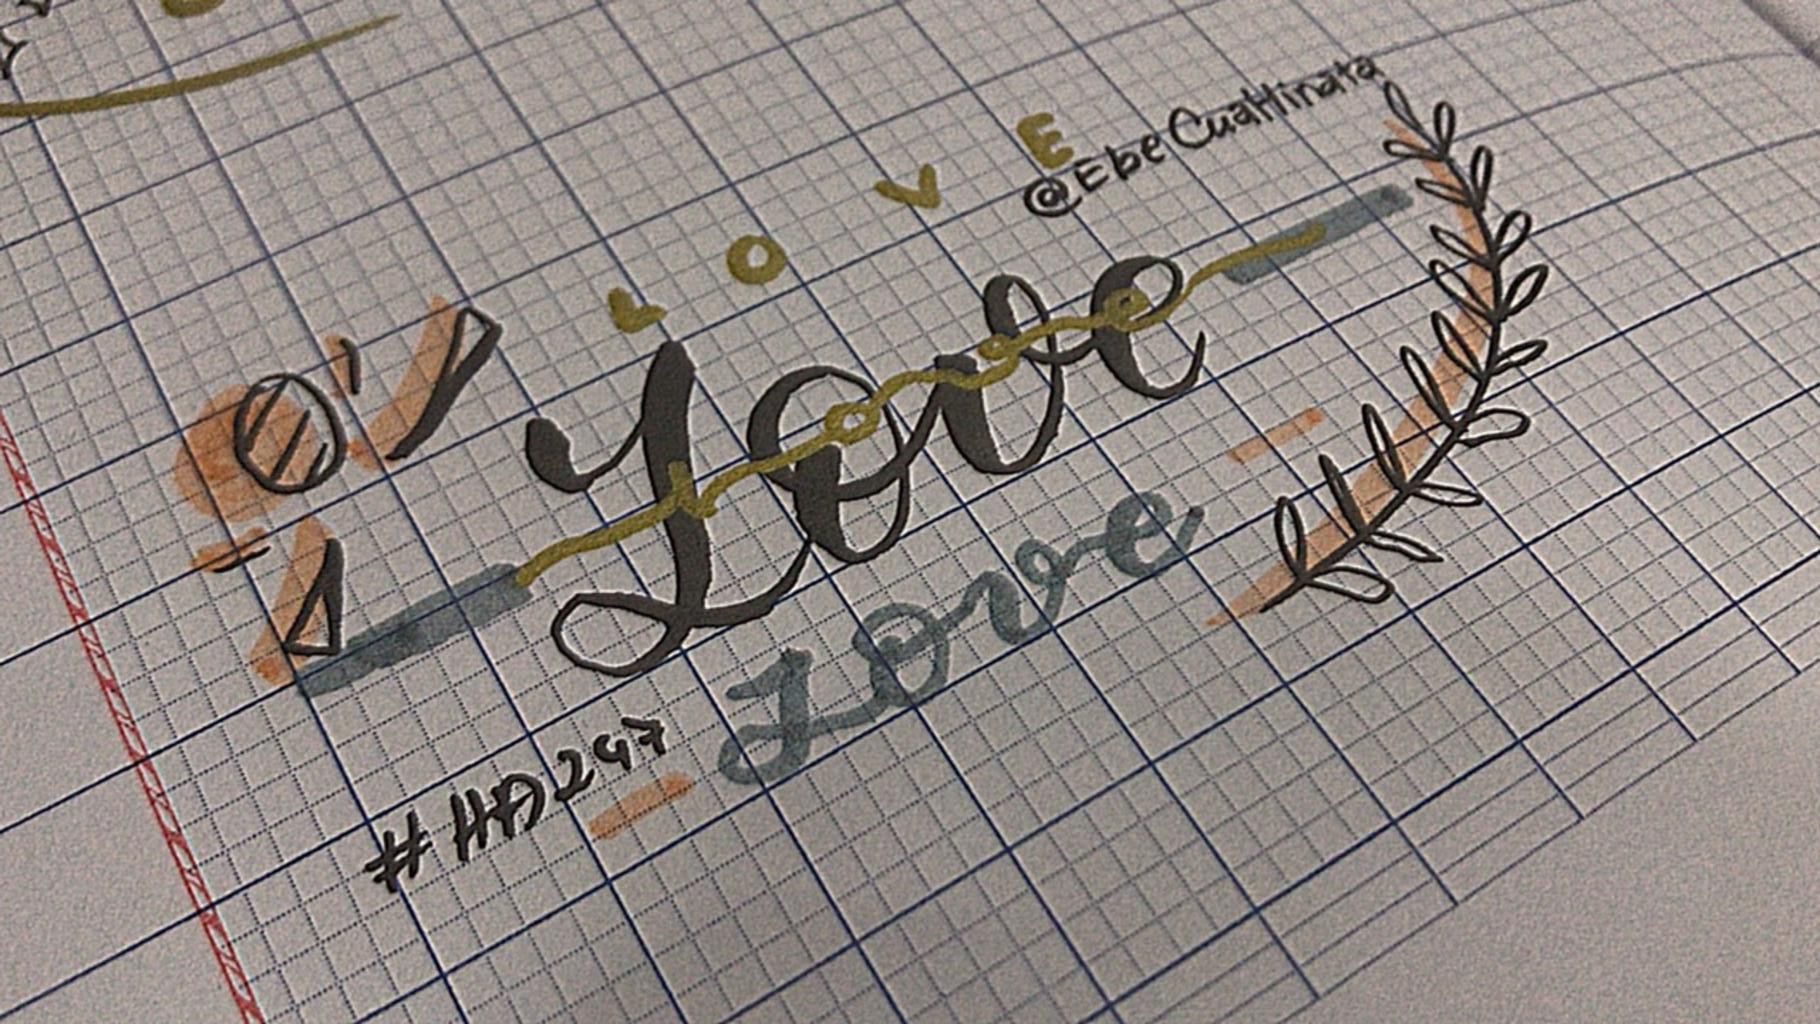 @EbeCuahtinata
L O V E
Love
love
#HD247